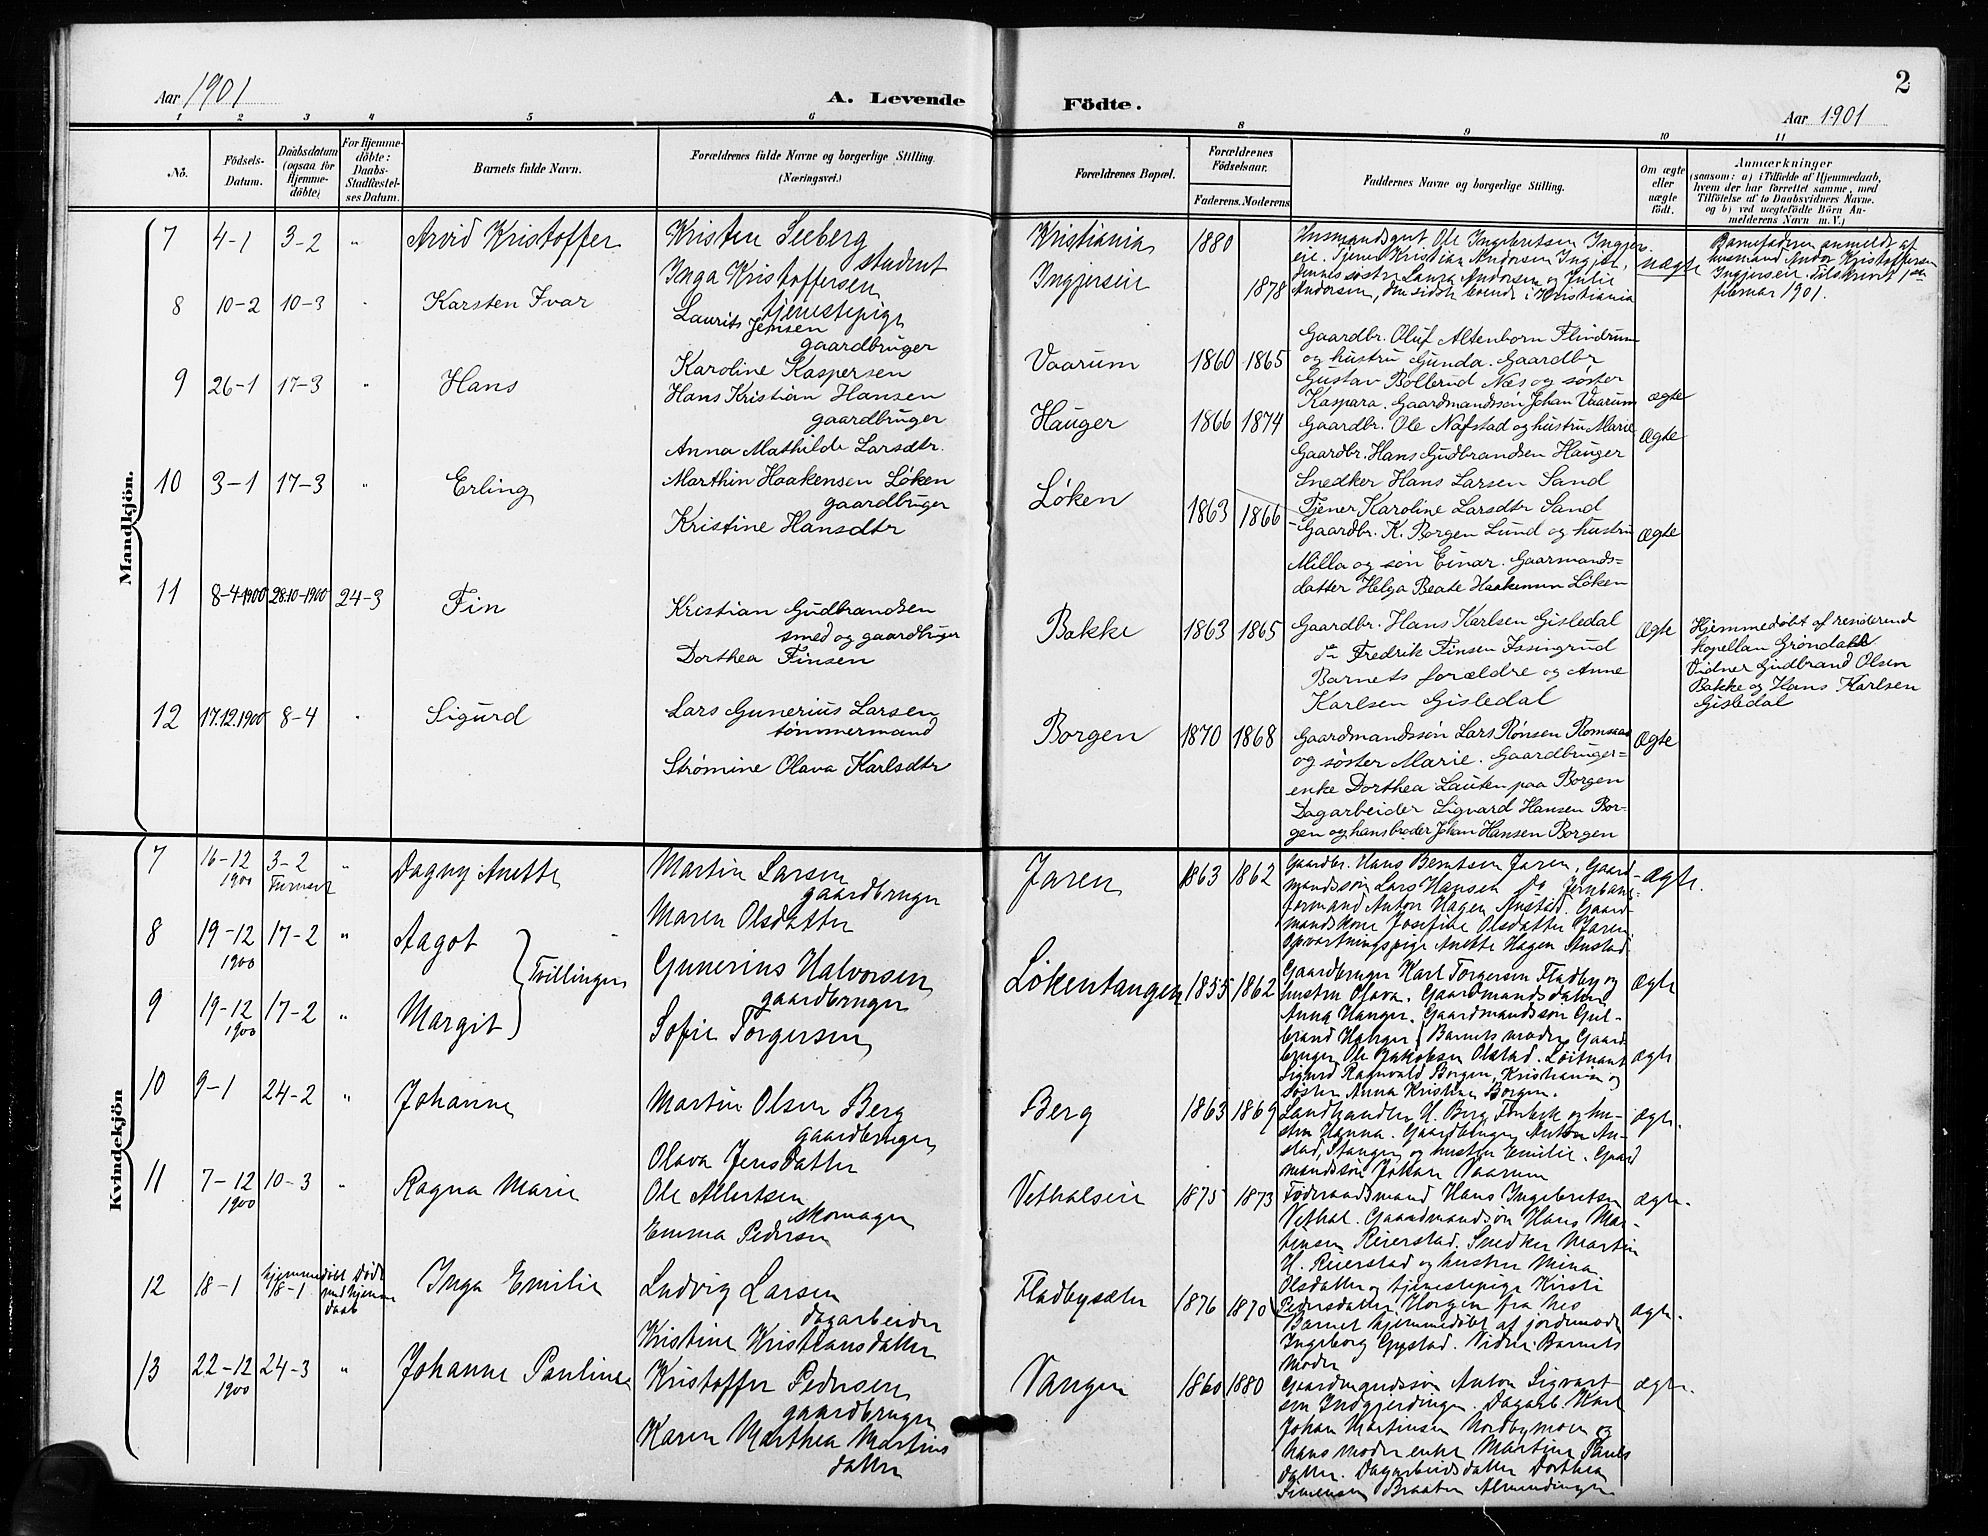 2
Aar 1901
A. Levende Födte.
Aar 1901
1 2 3 4 5 6 8 9 10 11
No.
Födsels-Datum.
Daabsdatum (ogsaa for Hjemmedöbte)
For Hjemmedöbte: Daabs-Stadfæstelses Datum.
Barnets fulde Navn.
Forældrenes fulde Navne og borgerlige Stilling.
(Næringsvei.)
Forældrenes Bopæl.
Forældrenes Födselsaar.
Faderens. Moderens
Faddernes Navne og borgerlige Stilling.
Om ægte eller uægte födt.
Anmærkninger
(saasom: a) i Tilfælde af Hjemmedaab, hvem der har forrettet samme, med Tilföielse af to Daabsvidners Navne. og b) ved uægtefödte Börn Anmelderens Navn m. V.)
Mandkjön.
7 4-1 3-2 " Arvid Kristoffer
Kristen Seeberg
student
Inga Kristoffersen
tjenestepige
Kristiania 1880
Ingjerseie 1878
Husmandsgut Ole Ingebretsen Ingjers-
eie. Tjener Kristian Andersen Ingjer,
hennes søstre Laura Andersen og Julie
Andersen, den sidste boende i Kristiania
uægte
Barnefaderen anmeldt af
husmand Andor Kristoffersen
Ingjerseie. Tilskrevet 1ste
februar 1901.
8 10-2 10-3 " Karsten Ivar
Laurits Jensen
gaardbruger
Karoline Kaspersen
Vaarum 1860 1865
Gaardbr. Oluf Altenborn Flindrum
og hustru Gunda. Gaardbr
Gustav Bollerud Næs og søster
Kaspara. Gaardmandssøn Johan Vaarum
ægte
9 26-1 17-3 " Hans
Hans Kristian Hansen
gaardbruger
Anna Mathilde Larsdtr.
Hauger 1866 1874
Gaardbr. Ole Nafstad og hustru Marie
Gaardbr. Hans Gudbrandsen Hauger
Snedker Hans Larsen Sand
Tjener Karoline Larsdtr Sand
Ægte
10 3-1 17-3 " Erling
Marthin Haakensen Løken
gaardbruger
Kristine Hansdtr
Løken 1863 1866
Gaardbr. K. Borgen Lund og hustru
Milla og søn Einar. Gaarmands-
datter Helga Beate Haakensen Løken
Ægte
11 8-4 1900 28.10-1900 24-3 Fin
Kristian Gudbrandsen
smed og gaardbruger
Dorthea Finsen
Bakke 1863 1865
Gaardbr. Hans Karlsen Gisledal
do Fredrik Finsen Fosingrud
Barnets forældre og Anne
Karlsen Gisledal
Ægte
Hjemmedøbt af residerend
kapellan Grøndahl
Vidner Gudbrand Olsen
Bakke og Hans Karlsen
Gisledal
12 17.12.1900 8-4 " Sigurd
Lars Gunerius Larsen
tømmermand
Strømine Olava Karlsdtr
Borgen 1870 1868
Gaardmandssøn Lars Rønsen Romsaas
og søster Marie. Gaardbruger-
enke Dorthea Lauten paa Borgen
Dagarbeider Sigvard Hansen Bor-
gen og hans broder Johan Hansen Borgen
Ægte
Kvindekjön
7 16-12 1900 3-2 " Dagny Anette
Martin Larsen
gaardbruger
Maren Olsdatter
Jaren 1863 1862
Gaardbr. Hans Berntsen Jaren. Gaard-
mandssøn Lars Hansen do Jernbane-
formand Anton Hagen Anstad. Gaard-
mandskone Josefine Olsdatter Jaren
Opvartningspige Anette Hagen Anstad.
ægte.
8 19-12 1900 17-2 " Aagot
Tvillinger
9 19-12 1900 17-2 " Margit
Gunerius Halvorsen
gaardbruger
Sofie Torgersen
Løkentangen 1855 1862
Gaardbruger Karl Torgersen Fladby og
hustru Olava. Gaardmandsdatter
Anna Hauger. Gaardmandssøn Gul-
brand Hauger. Barnets moder, Gaard-
bruger Ole Jakobsen Olstad. Løitnant
Sigurd Ragnvald Borgen, Kristiania og
søster Anna Kristine Borgen.
ægte
ægte
10 9-1 24-2 " Johanne
Martin Olsen Berg
gaardbruger
Olava Jensdatter
Berg 1863 1869
Landhandler H. Berg Fonbek og hu-
stru Hanna. Gaardbruger Anton An-
stad, Stangen og hustru Emilie. Gaard
mandssøn Johan Vaarum
ægte.
11 7-12 1900 10-3 " Ragna Marie
Ole Albertsen
skomager
Emma Pedersen
Vethalseie 1875 1873
Føderaadsmand Hans Ingebretsen
Vethal. Gaardmandsøn Hans Mar-
tinsen Reierstad. Snedker Martin
H. Reierstad og hustru Mina
Olsdatter og tjenestepige Kirsti
Pedersdatter Horgen fra Nes
ægte.
12 18-1 hjemmedøbt 18-1 Død med hjemmedaab Inga Emilie
Ludvig Larsen
dagarbeider
Kristine Kristiansdatter
Fladbysæter 1876 1870
Barnet hjemmedøbt af jordemoder
Ingeborg Gystad. Vidne: Barnets
Moder
ægte.
13 22-12 1900 24-3 " Johanne Pauline
Kristoffer Pedersen
gaardbruger
Karen Marthea Martins
datter
Vangen 1860 1880
Gaardmandssøn Anton Sigvart-
sen Indgjerdingen. Dagarb. Karl
Johan Martinsen Nordbymoen og
hans moder enke Martine Pauls
datter. Dagarbeidsdatter Dorthea
Simensen Braaten Almindingen
ægte.